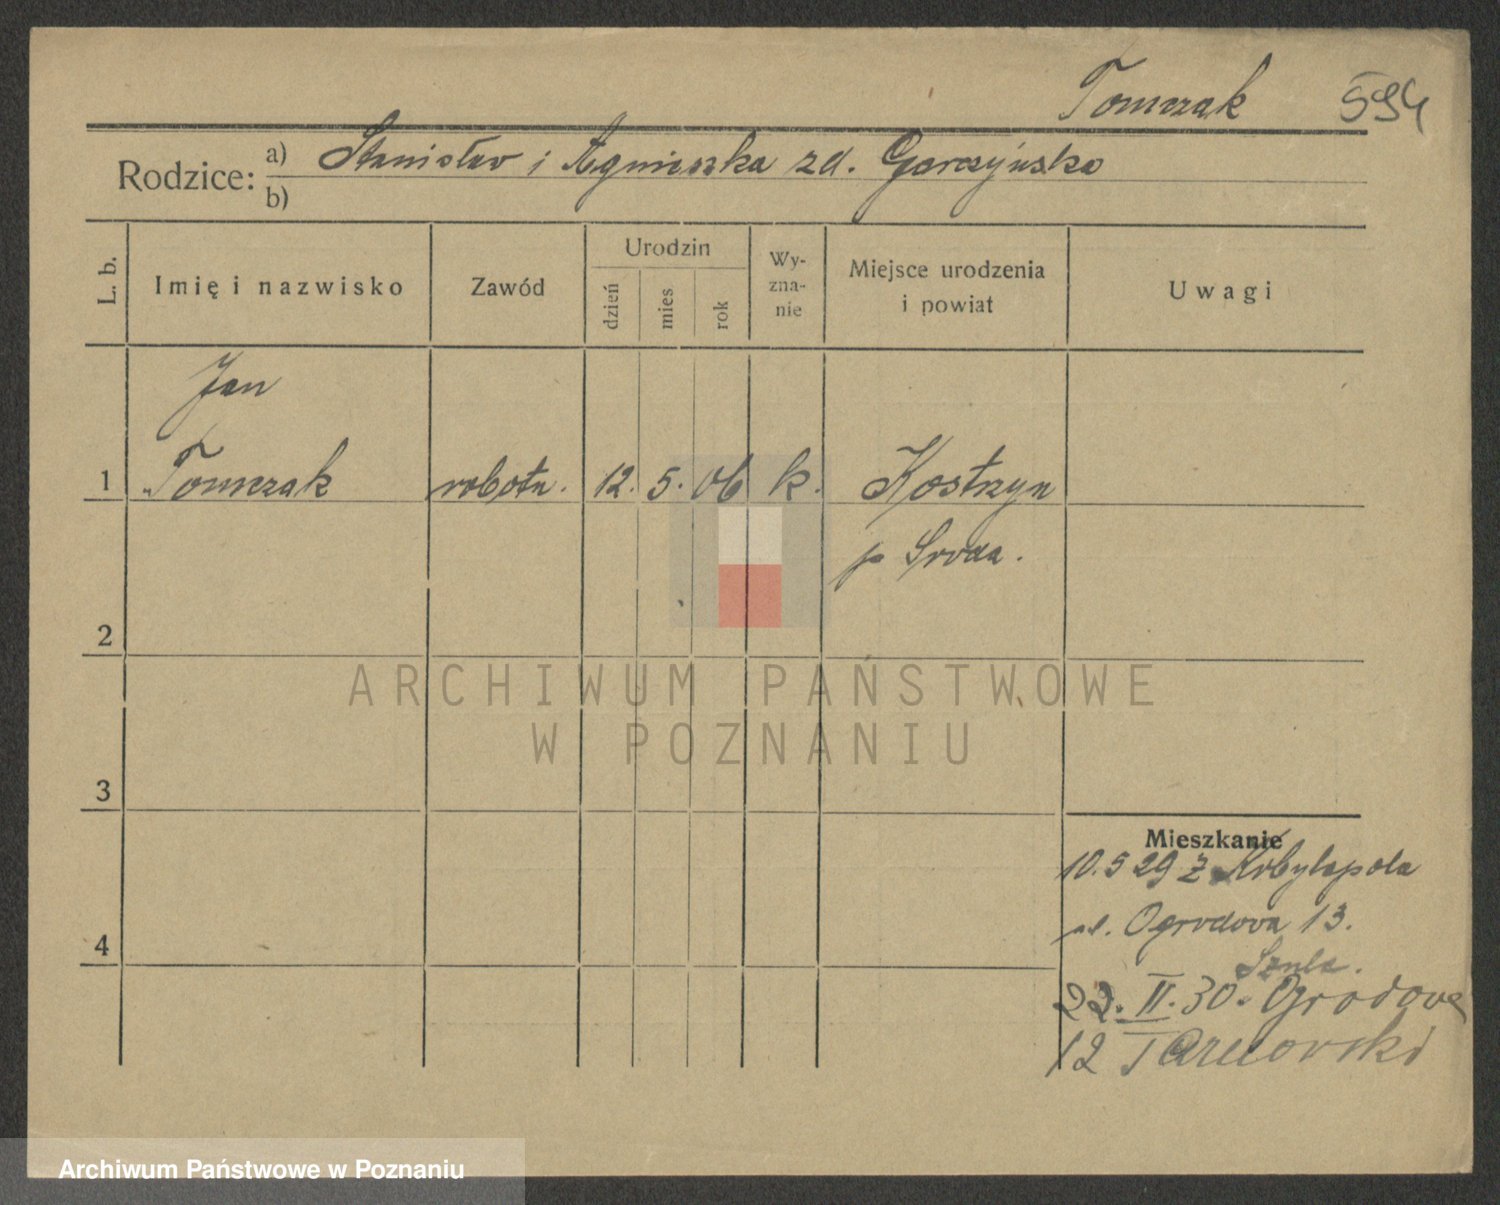 Tomczak 594
Rodzice: a) Stanisław i Agnieszka zd. Garczyńska
b)
L. b. Imię i nazwisko Zawód Urodzin dzień mies rok Wy-zna-nie Miejsce urodzenia i powiat Uwagi
Jan
1 Tomczak robotn. 12. 5. 06 k. Kostrzyn
p Sroda.
2
ARCHIWUM PAŃSTWOWE
W POZNANIU
3
Mieszkanie
10.5 29 z Kobylapola
ul. Ogrodova 13.
4
Szulc.
22. II. 30. Ogrodova
12
Archiwum Państwowe w Poznaniu